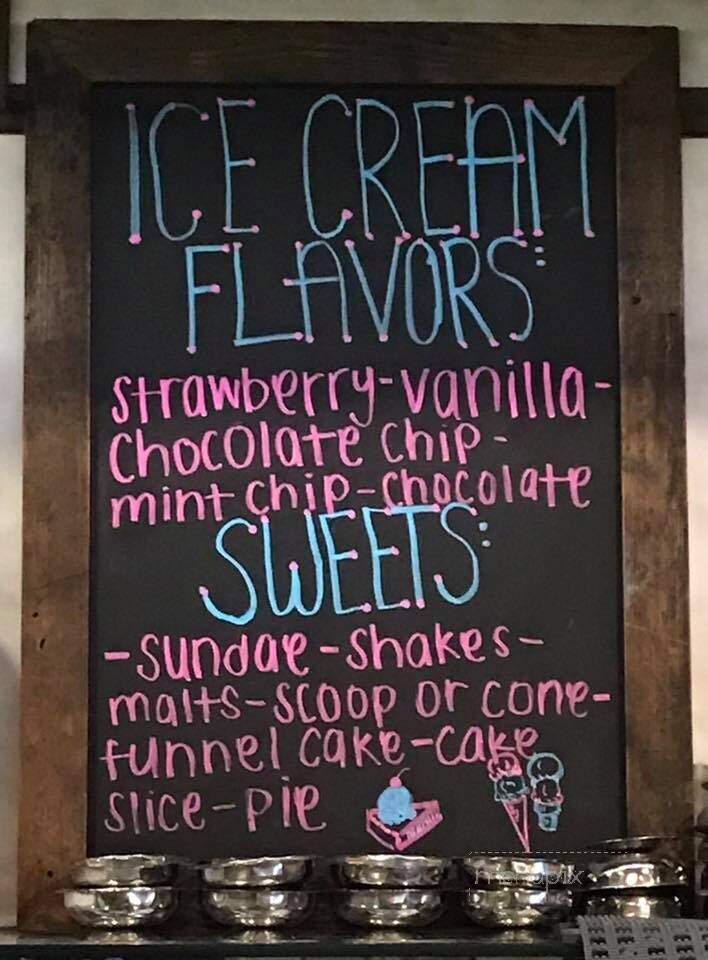 ICE CREAM
FLAVORS:
strawberry-vanilla-
chocolate chip-
mint chip-chocolate
SWEETS:
-sundae-shakes-
malts-scoop or cone-
funnel cake-cake
slice-pie
menupix